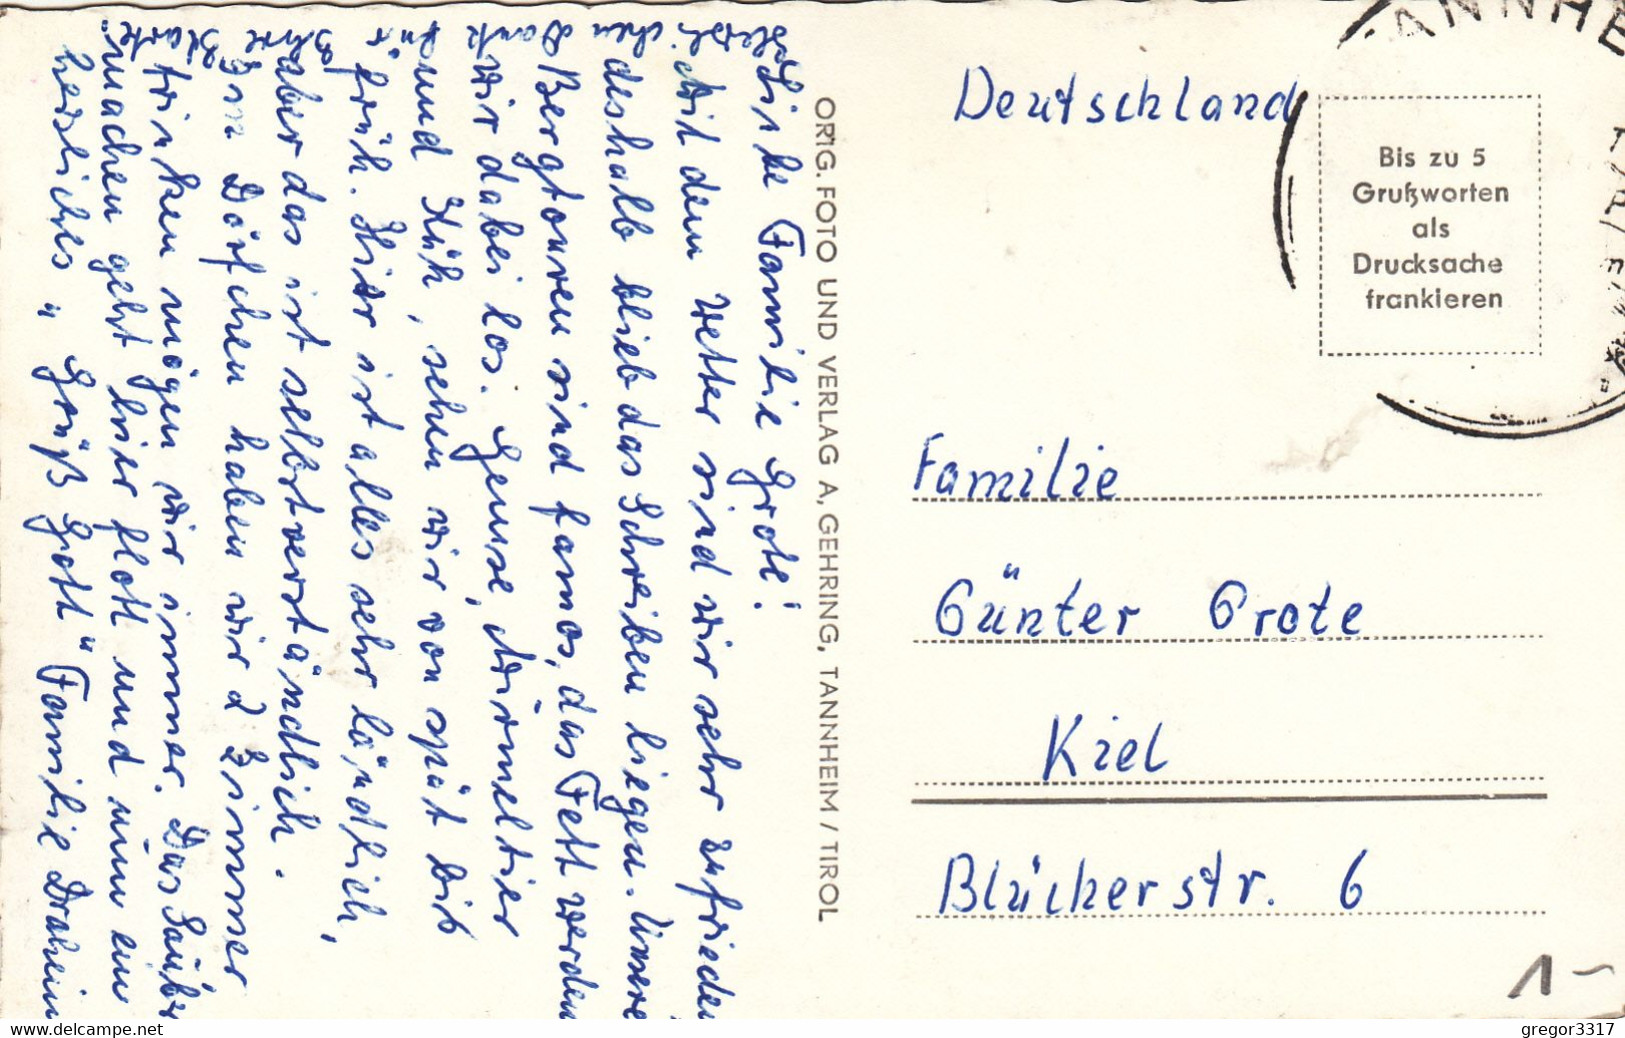 Liebe Familie Grote!
Mit dem Wetter sind wir sehr zufrieden
deshalb blieb das Schreiben liegen. Unsere
Bergtouren sind famos, das Fett werden
wir dabei los. Gemse, Mürmeltier
und Kuh, sehen wir von spät bis
früh. Hier ist alles sehr ländlich,
aber das ist selbstverständlich.
Im Dörfchen haben wir 2 Zimmer
trinken mögen wir immer. Das
machen geht hier flott und nun ein
herzliches "Grüß Gott" Familie Draheim
Herzli
chen
Dank
für
Karte
ORIG. FOTO UND VERLAG A. GEHRING, TANNHEIM / TIROL
ANNHE
Deutschland
Bis zu 5
Grußworten
als
Drucksache
frankieren
Familie
Günter Grote
Kiel
Blücherstr. 6
1-
delcampe.net
gregor3317